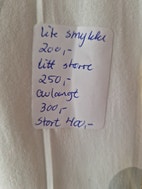 Lite smykke
200,-
litt større
250,-
avlangt
300,-
stort 400,-